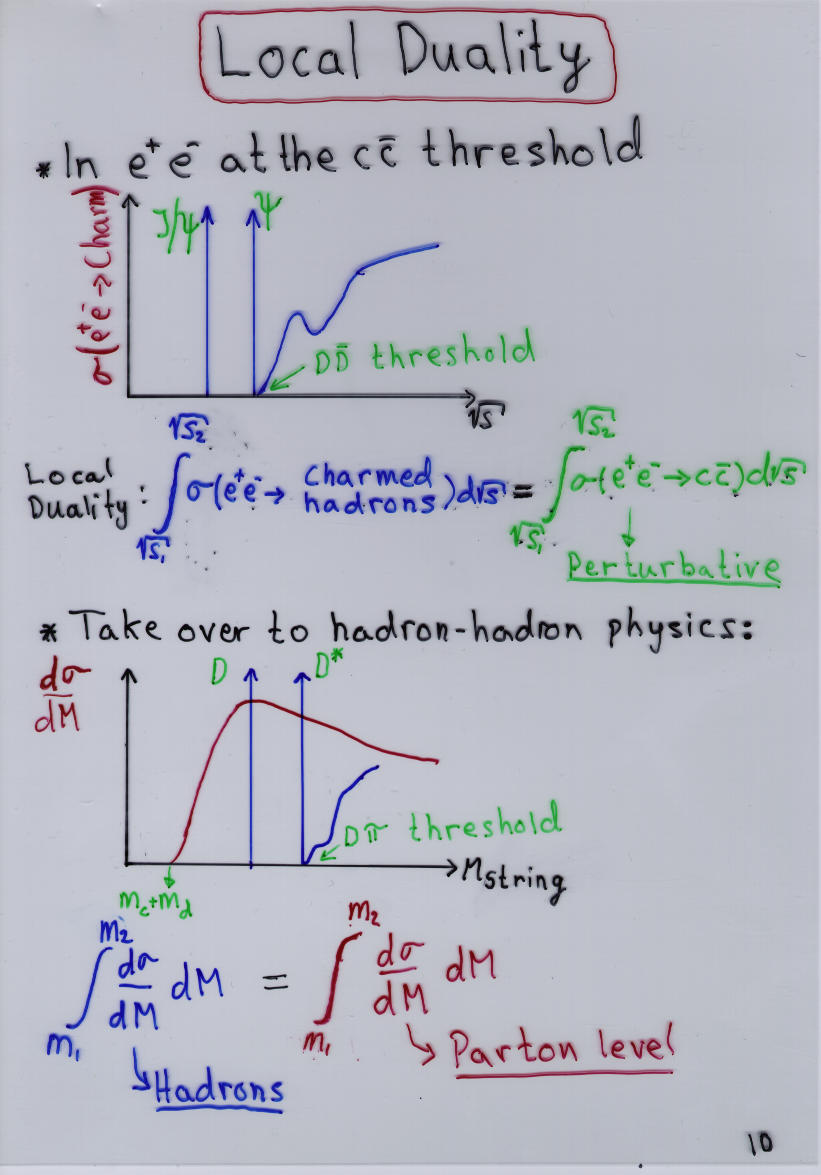 Local Duality
* In e⁺e⁻ at the cc̄ threshold
σ(e⁺e⁻→Charm)
J/ψ
ψ
DD̄ threshold
√s
Local Duality: ∫_{√s₁}^{√s₂} σ(e⁺e⁻→ charmed hadrons)d√s = ∫_{√s₁}^{√s₂} σ(e⁺e⁻→cc̄)d√s
Perturbative
* Take over to hadron-hadron physics:
dσ/dM
D
D*
Dπ threshold
M_string
m_c+m_d
∫_{m₁}^{m₂} dσ/dM dM = ∫_{m₁}^{m₂} dσ/dM dM
Parton level
Hadrons
10